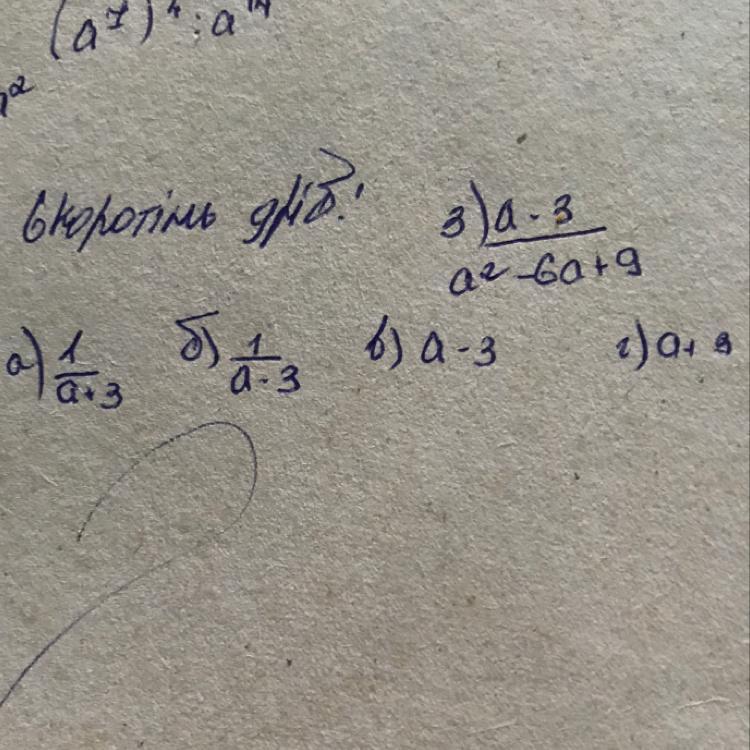 (a⁷)⁴ : a¹⁴
Скоротіть дріб: 3) (a - 3)/(a² - 6a + 9)
а) 1/(a + 3) б) 1/(a - 3) в) a - 3 г) a + 3